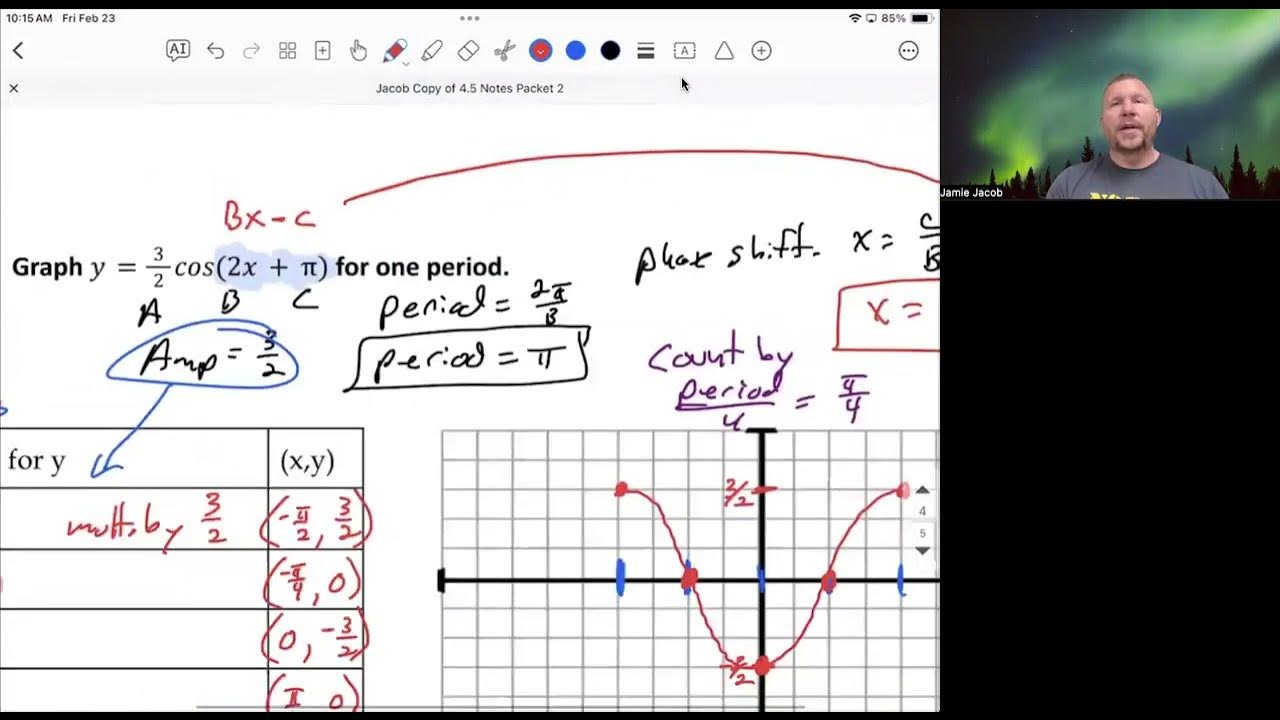 10:15 AM Fri Feb 23
85%
AI
A
Jacob Copy of 4.5 Notes Packet 2
Jamie Jacob
Bx - C
Graph y = 3/2 cos(2x + π) for one period.
A B C
Amp = 3/2
period = 2π/B
period = π
phase shift. x = C/B
x =
count by
period/4 = π/4
for y (x,y)
mult. by 3/2 (-π/2, 3/2)
(-π/4, 0)
(0, -3/2)
3/2
-3/2
4
5